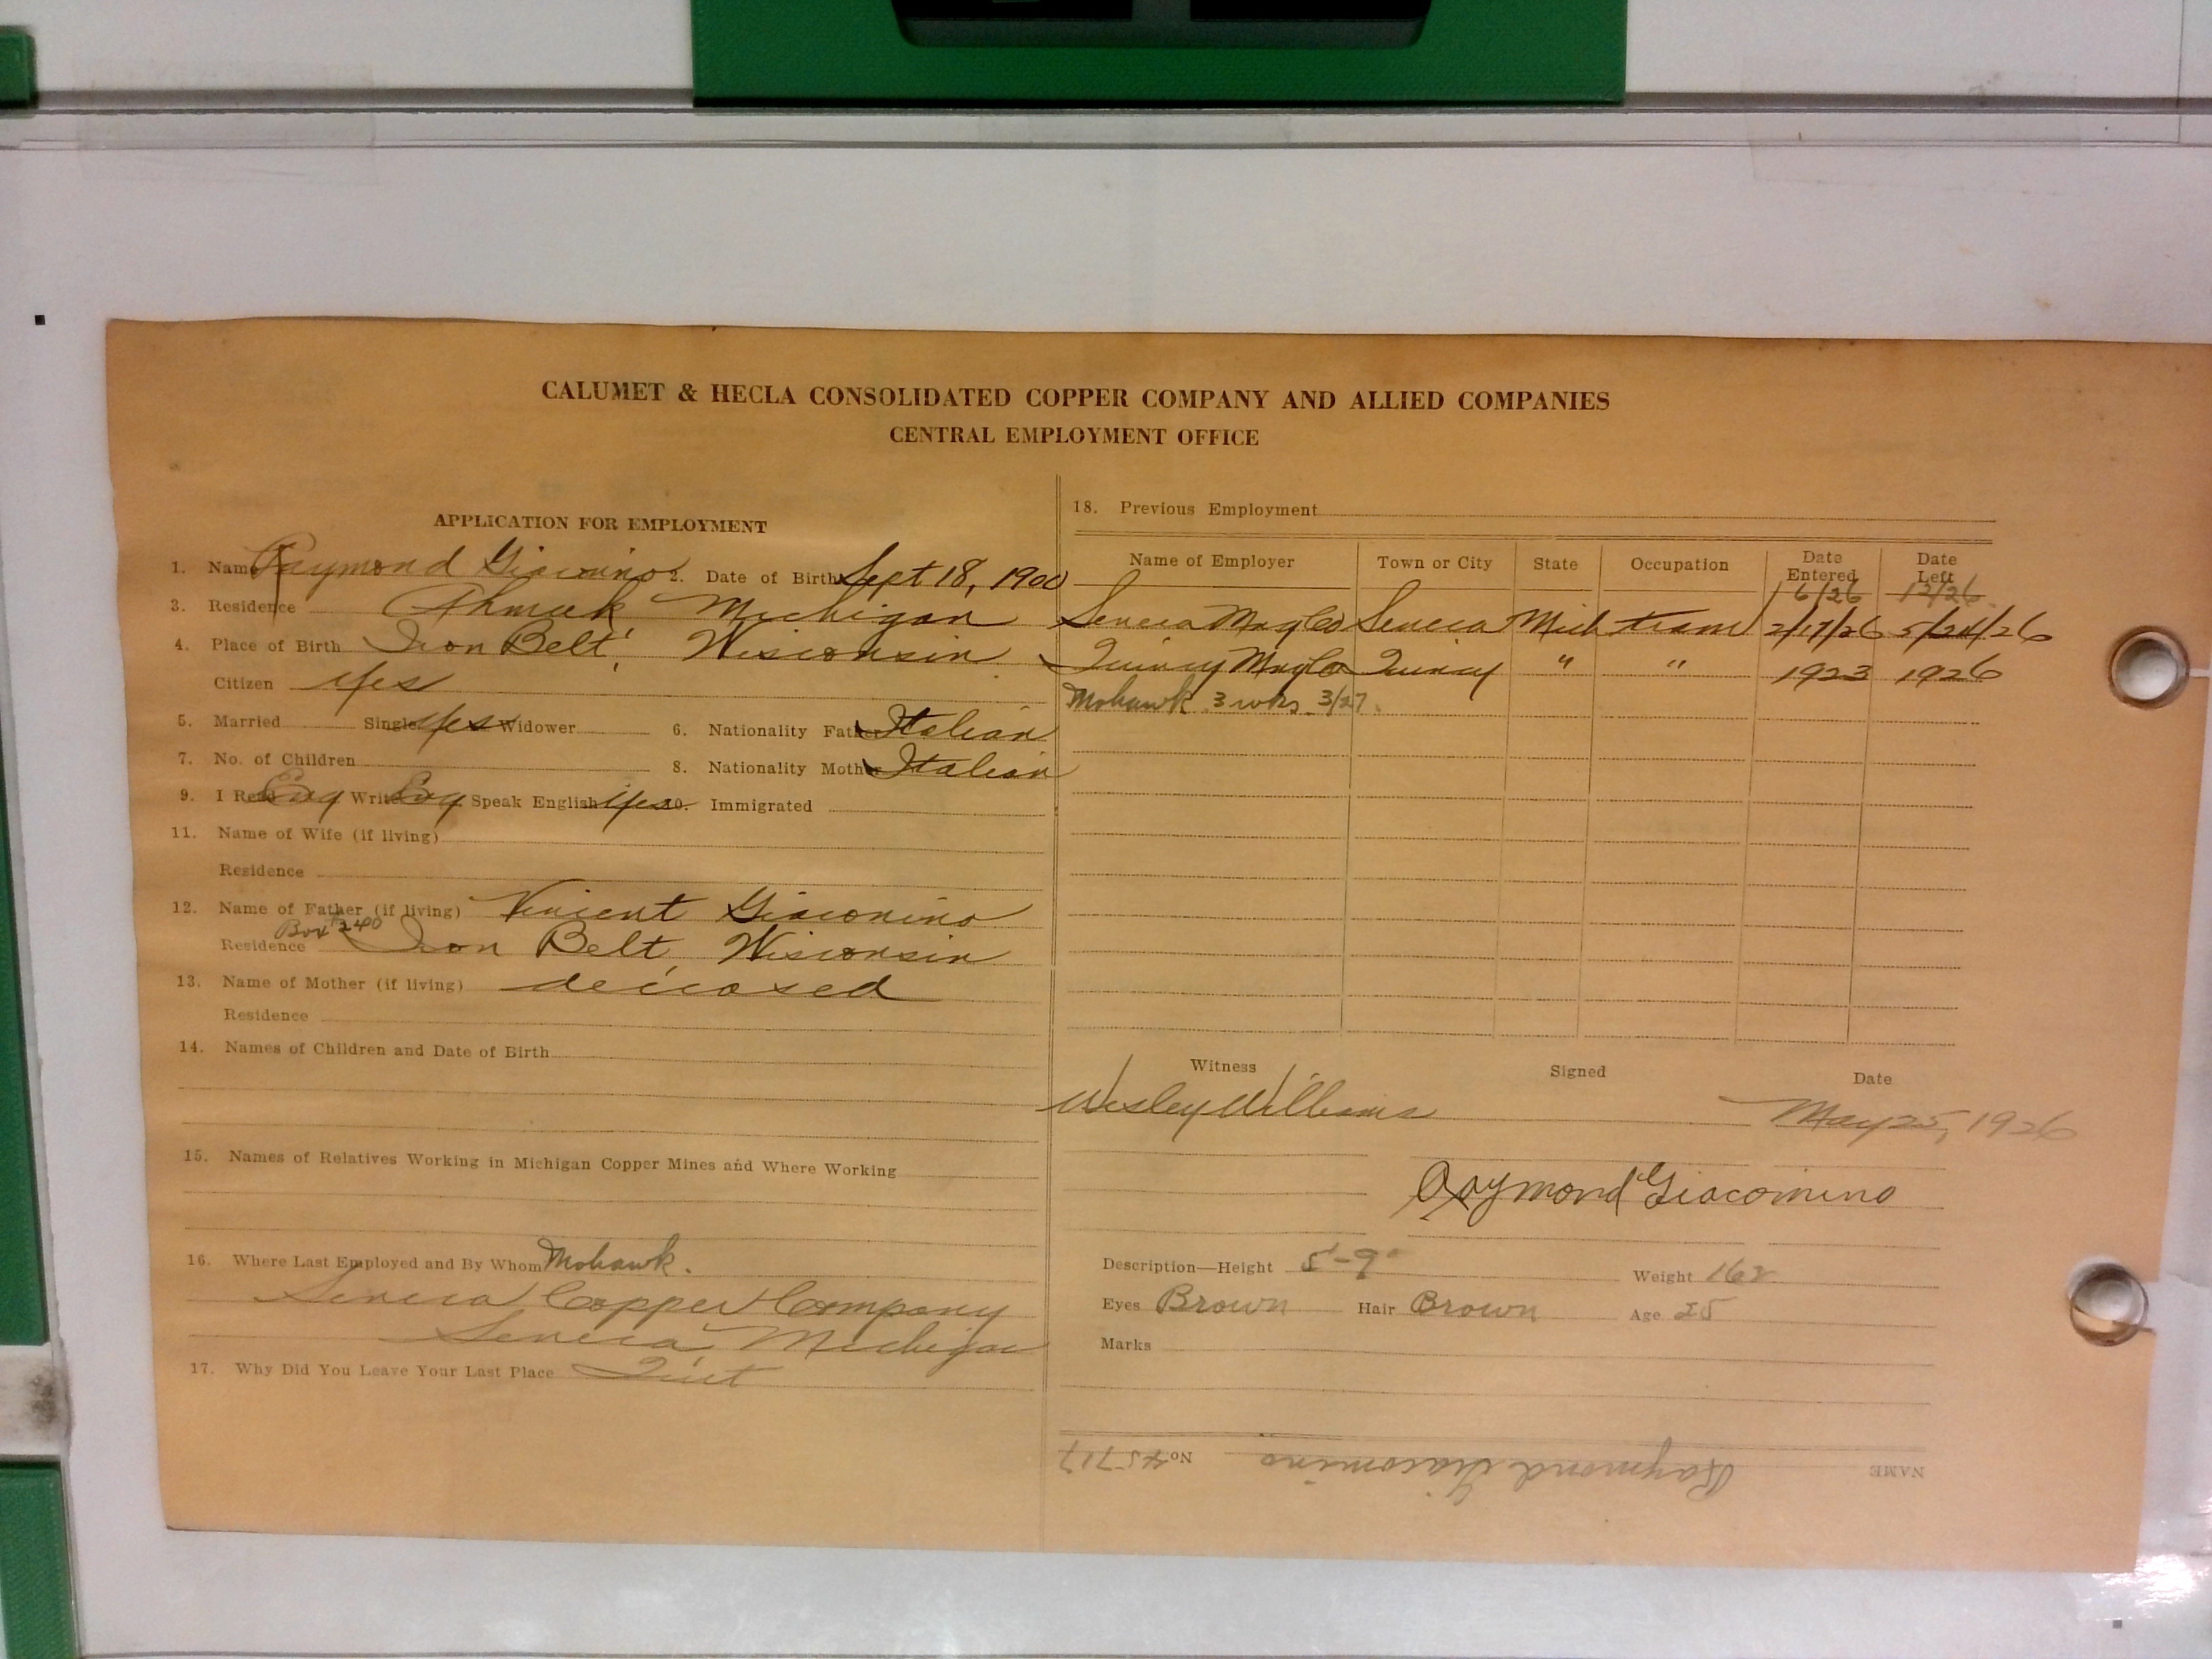 CALUMET & HECLA CONSOLIDATED COPPER COMPANY AND ALLIED COMPANIES
CENTRAL EMPLOYMENT OFFICE
APPLICATION FOR EMPLOYMENT
1. Name Raymond Giacomino 2. Date of Birth Sept 18, 1900
3. Residence Ahmeek Michigan
4. Place of Birth Iron Belt, Wisconsin
Citizen yes
5. Married Single yes Widower 6. Nationality Father Italian
7. No. of Children 8. Nationality Mother Italian
9. I Read Eng Write Eng Speak English yes 10. Immigrated
11. Name of Wife (if living)
Residence
12. Name of Father (if living) Vincent Giacomino
Box #240
Residence Iron Belt, Wisconsin
13. Name of Mother (if living) deceased
Residence
14. Names of Children and Date of Birth
15. Names of Relatives Working in Michigan Copper Mines and Where Working
16. Where Last Employed and By Whom Mohawk.
Seneca Copper Company
Seneca Michigan
17. Why Did You Leave Your Last Place Quit
18. Previous Employment
Name of Employer Town or City State Occupation Date Entered Date Left
6/26 12/26
Seneca Mng Co Seneca Mich tram 2/17/26 5/24/26
Quincy Mng Co Quincy " " 1923 1926
Mohawk 3 wks 3/27.
Witness Signed Date
Wesley Williams May 25, 1926
Raymond Giacomino
Description—Height 5'-9" Weight 162
Eyes Brown Hair Brown Age 25
Marks
NAME Raymond Giacomino No 45717